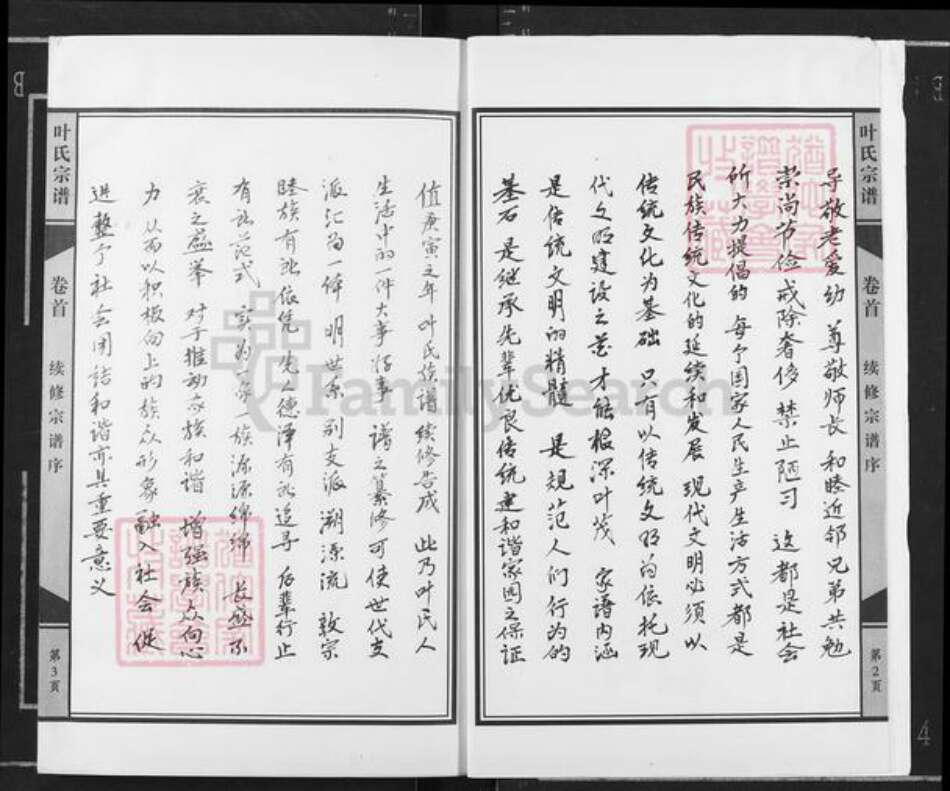 叶氏宗谱
卷首
续修宗谱序
第2页
导敬老爱幼 尊敬师长 和睦近邻 兄弟共勉
崇尚节俭 戒除奢侈 禁止陋习 这都是社会
所大力提倡的 每个国家人民生产生活方式都是
民族传统文化的延续和发展 现代文明必须以
传统文化为基础 只有以传统文明为依托现
代文明建设之花才能根深叶茂 家谱内涵
是传统文明的精髓 是规范人们行为的
基石 是继承先辈优良传统建和谐家园之保证
值庚寅之年 叶氏族谱续修告成 此乃叶氏人
生活中的一件大事好事 谱之纂修可使世代支
派汇为一体 明世系 别支派 溯源流 敦宗
睦族有所依凭 先人德泽有所追寻 后辈行止
有所范式 实为一家一族源源绵绵 长盛不
衰之益举 对于推动家族和谐 增强族众向心
力 从而以积极向上的族众形象融入社会 促
进整个社会团结和谐亦具重要意义
叶氏宗谱
卷首
续修宗谱序
第3页
FamilySearch